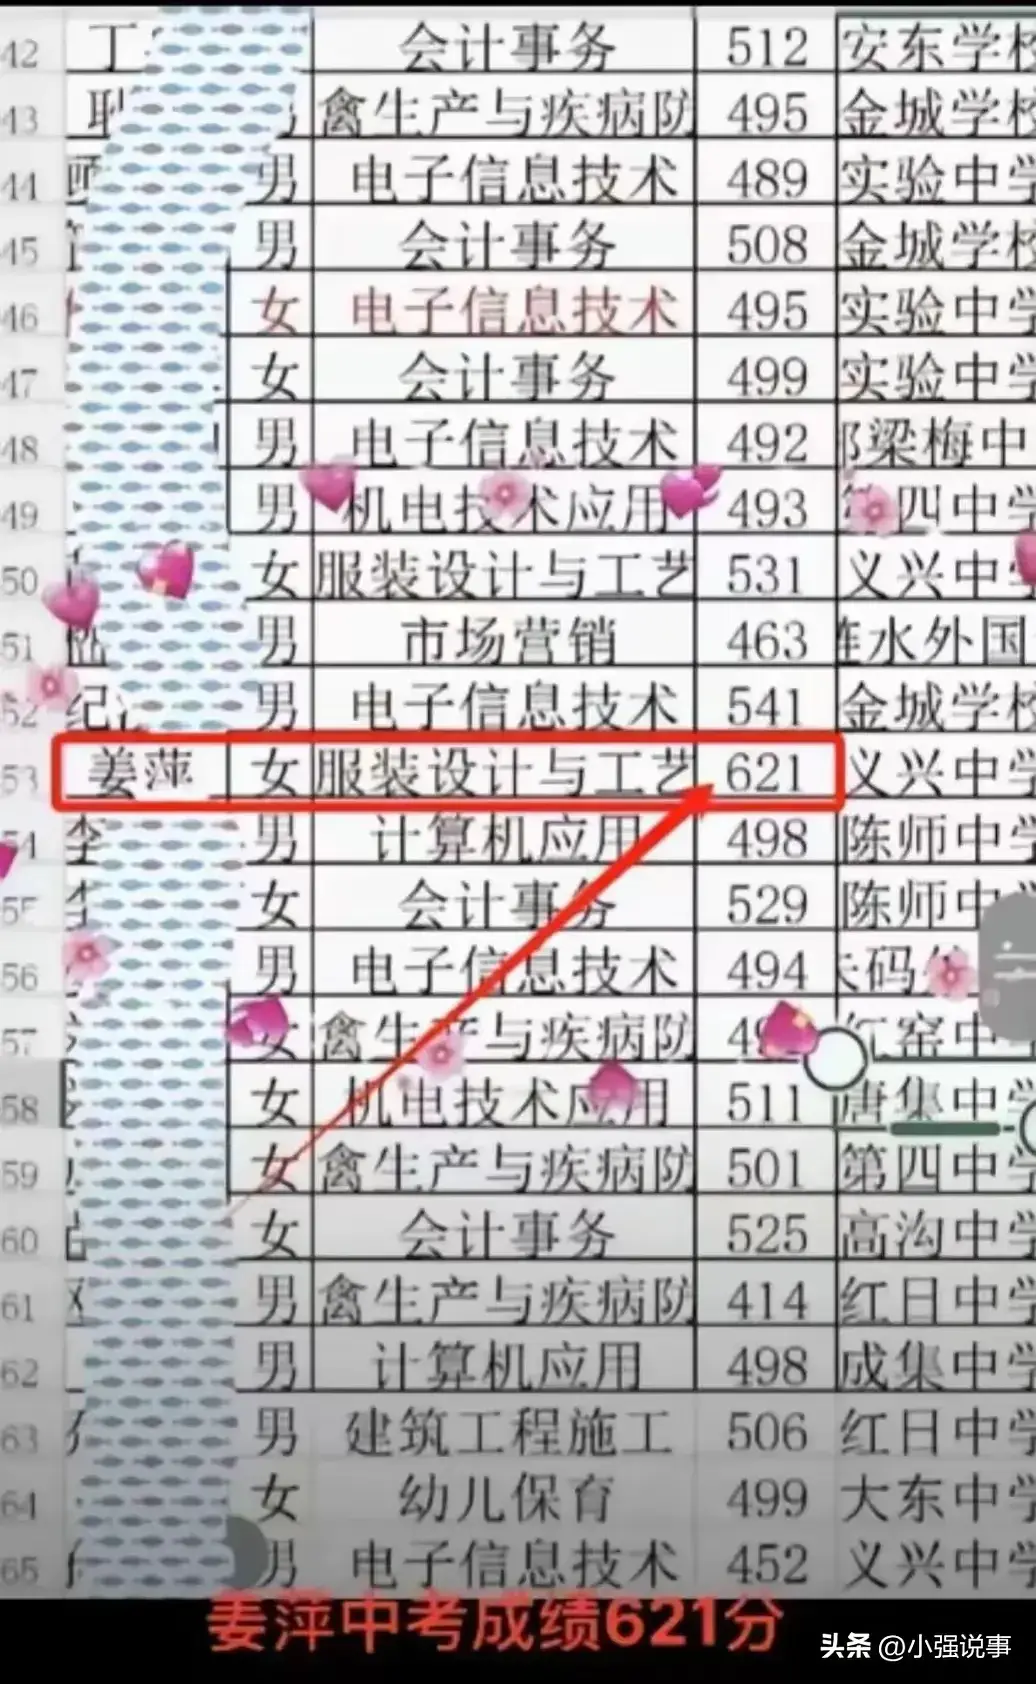 42 丁 会计事务 512 安东学校
43 耿 禽生产与疾病防 495 金城学校
44 男 电子信息技术 489 实验中学
45 男 会计事务 508 金城学校
46 女 电子信息技术 495 实验中学
47 女 会计事务 499 实验中学
48 男 电子信息技术 492 郑梁梅中
49 男 机电技术应用 493 第四中学
50 女 服装设计与工艺 531 义兴中学
51 男 市场营销 463 涟水外国
52 纪 男 电子信息技术 541 金城学校
53 姜萍 女 服装设计与工艺 621 义兴中学
54 李 男 计算机应用 498 陈师中学
55 李 女 会计事务 529 陈师中学
56 男 电子信息技术 494 码
57 女 禽生产与疾病防 红窑中
58 女 机电技术应用 511 唐集中学
59 女 禽生产与疾病防 501 第四中学
60 女 会计事务 525 高沟中学
61 男 禽生产与疾病防 414 红日中学
62 男 计算机应用 498 成集中学
63 男 建筑工程施工 506 红日中学
64 女 幼儿保育 499 大东中学
65 男 电子信息技术 452 义兴中学
姜萍中考成绩621分
头条 @小强说事